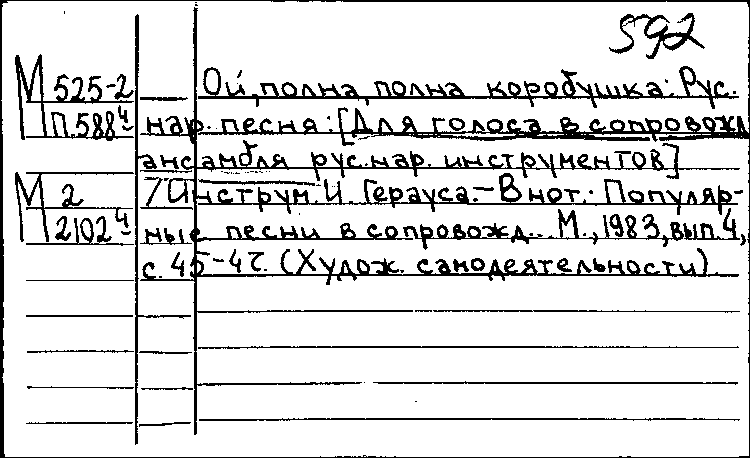 592
М 525-2 Ой, полна, полна коробушка: Рус.
П.588ч нар. песня: [Для голоса в сопровожд
ансамбля рус.нар. инструментов]
М 2 / Инструм. И. Герауса.-В нот.: Популяр-
2102ч ные песни в сопровожд... М., 1983, вып.4,
с. 45-47. (Худож. самодеятельности).